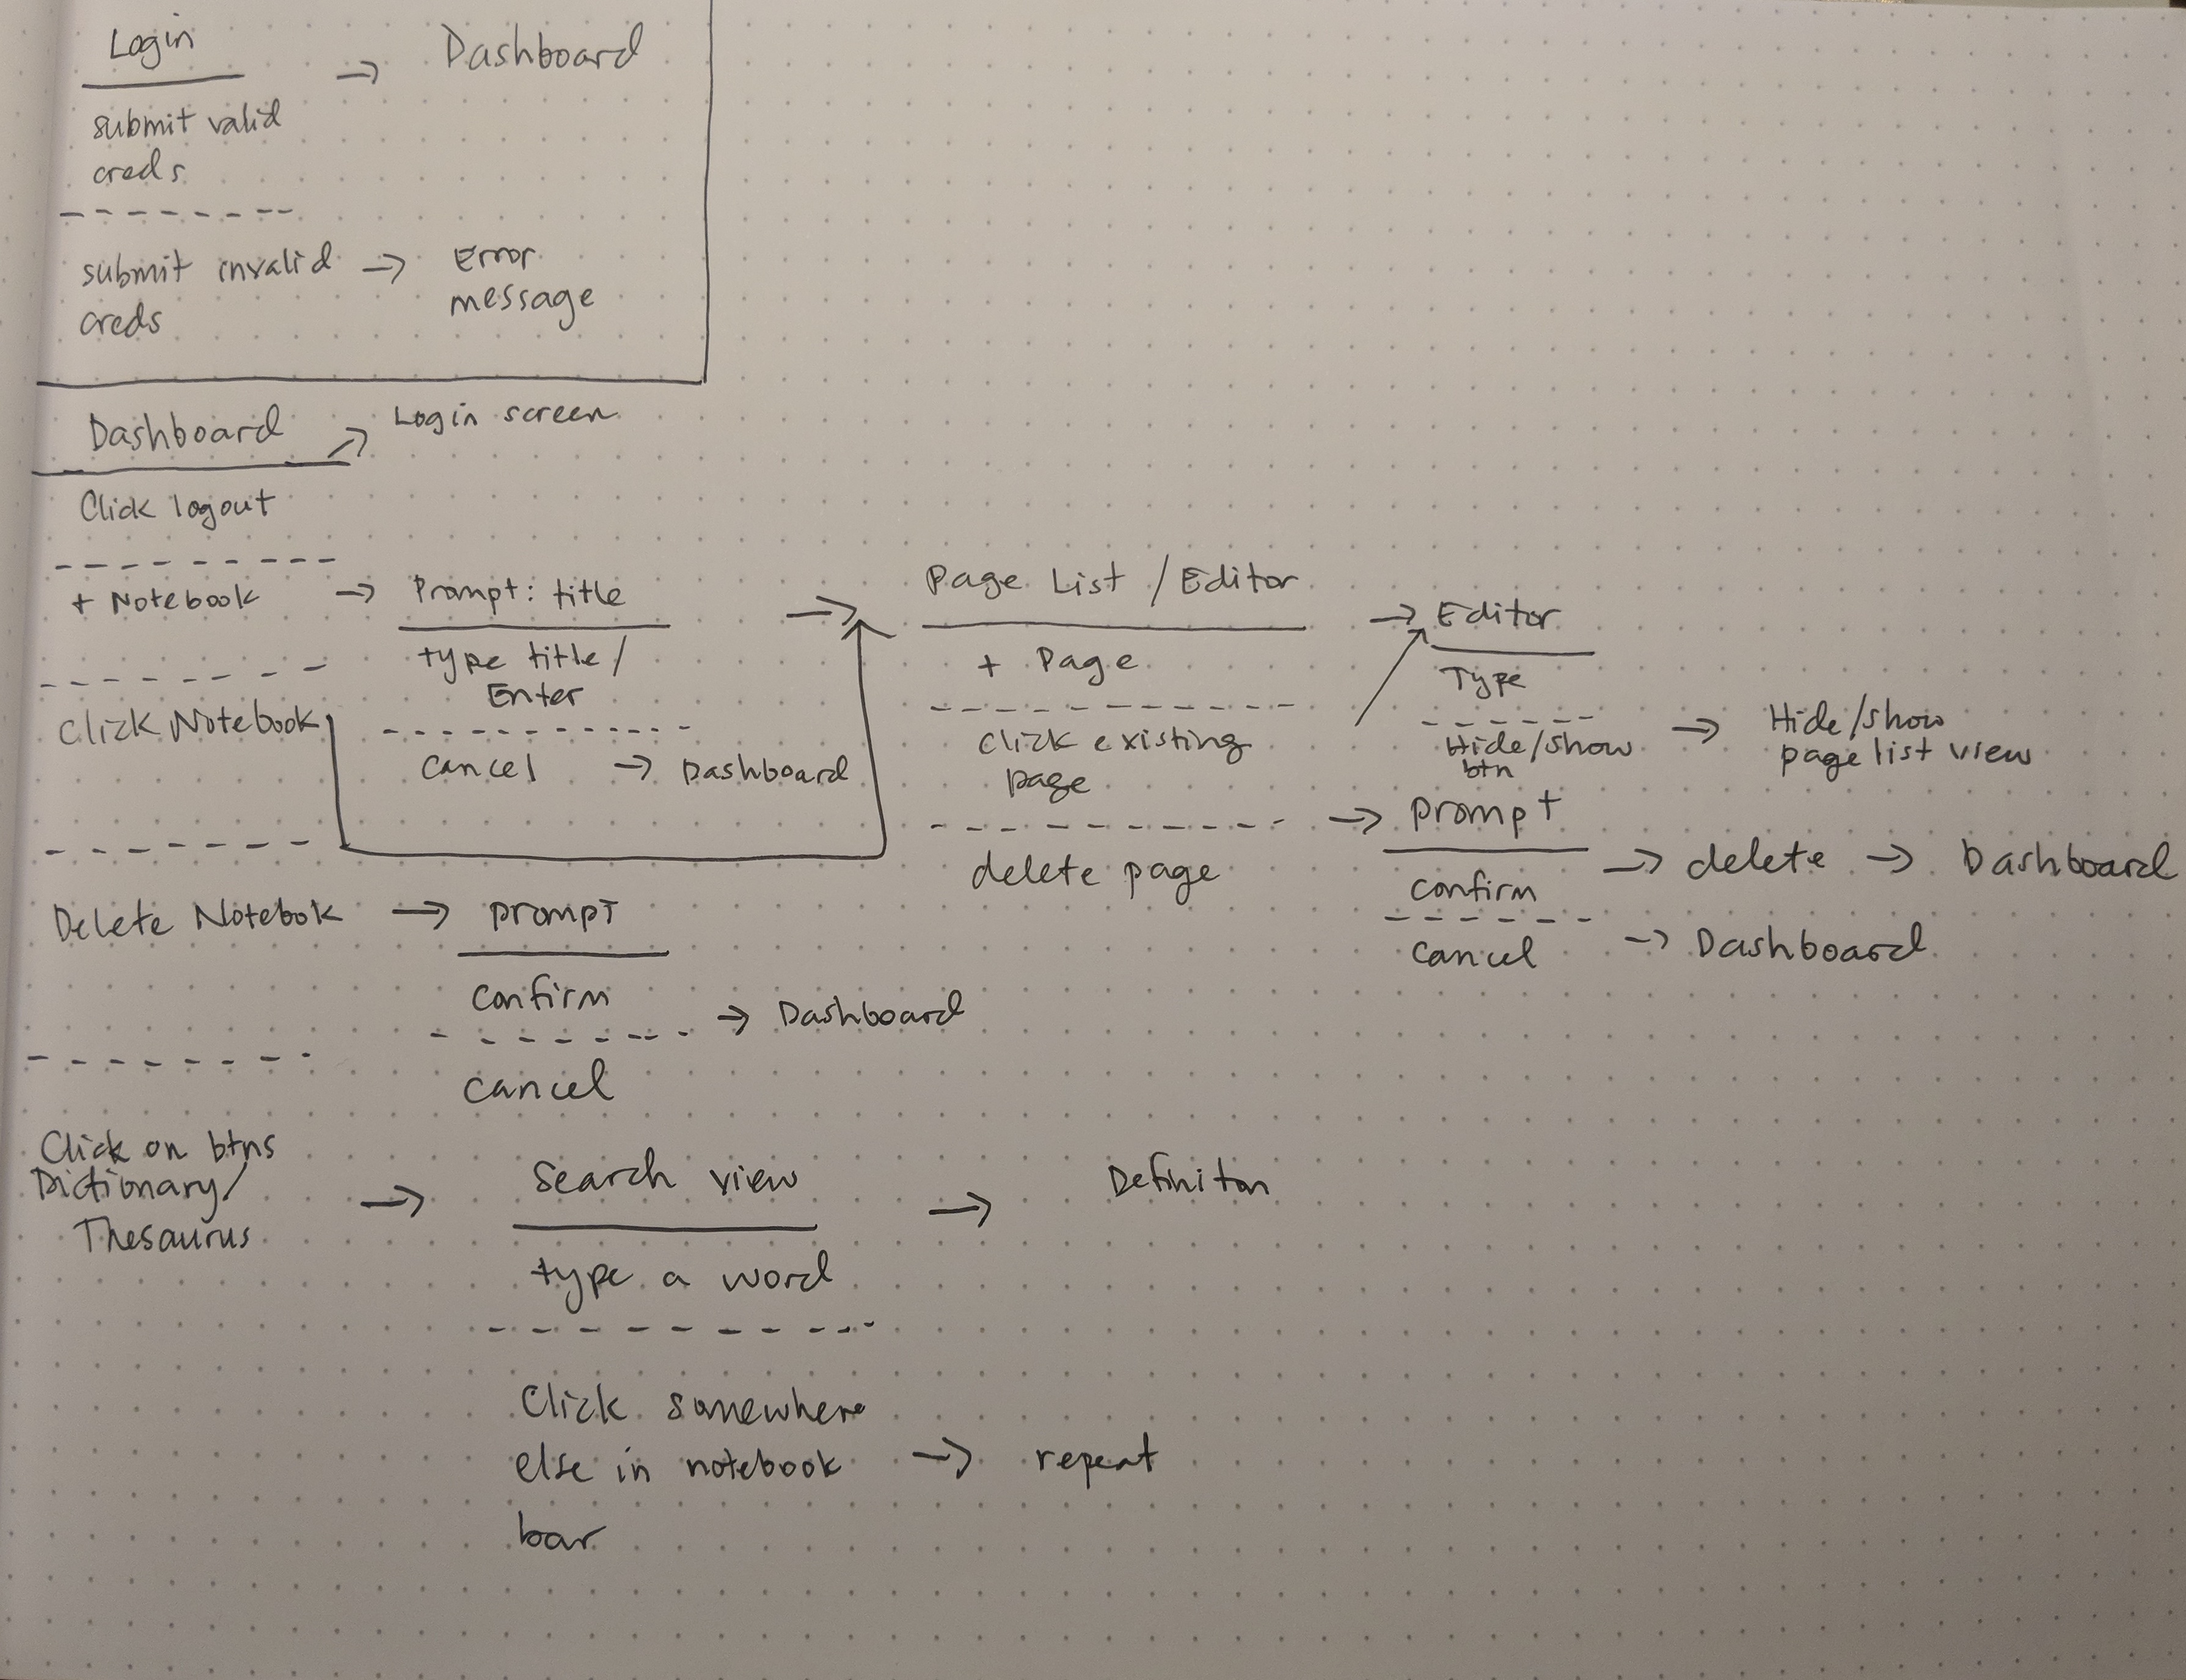 Login → Dashboard
submit valid
creds
submit invalid → Error
creds message
Dashboard → Login screen
Click logout
+ Notebook → Prompt: title → Page List / Editor → Editor
type title / + Page Type
Enter
Click Notebook click existing Hide/show → Hide/show
cancel → Dashboard page btn page list view
→ prompt
delete page confirm → delete → Dashboard
Delete Notebok → prompt cancel → Dashboard
confirm → Dashboard
cancel
Click on btns
Dictionary/ → Search view → Definiton
Thesaurus
type a word
Click somewhere
else in notebook → repeat
bar